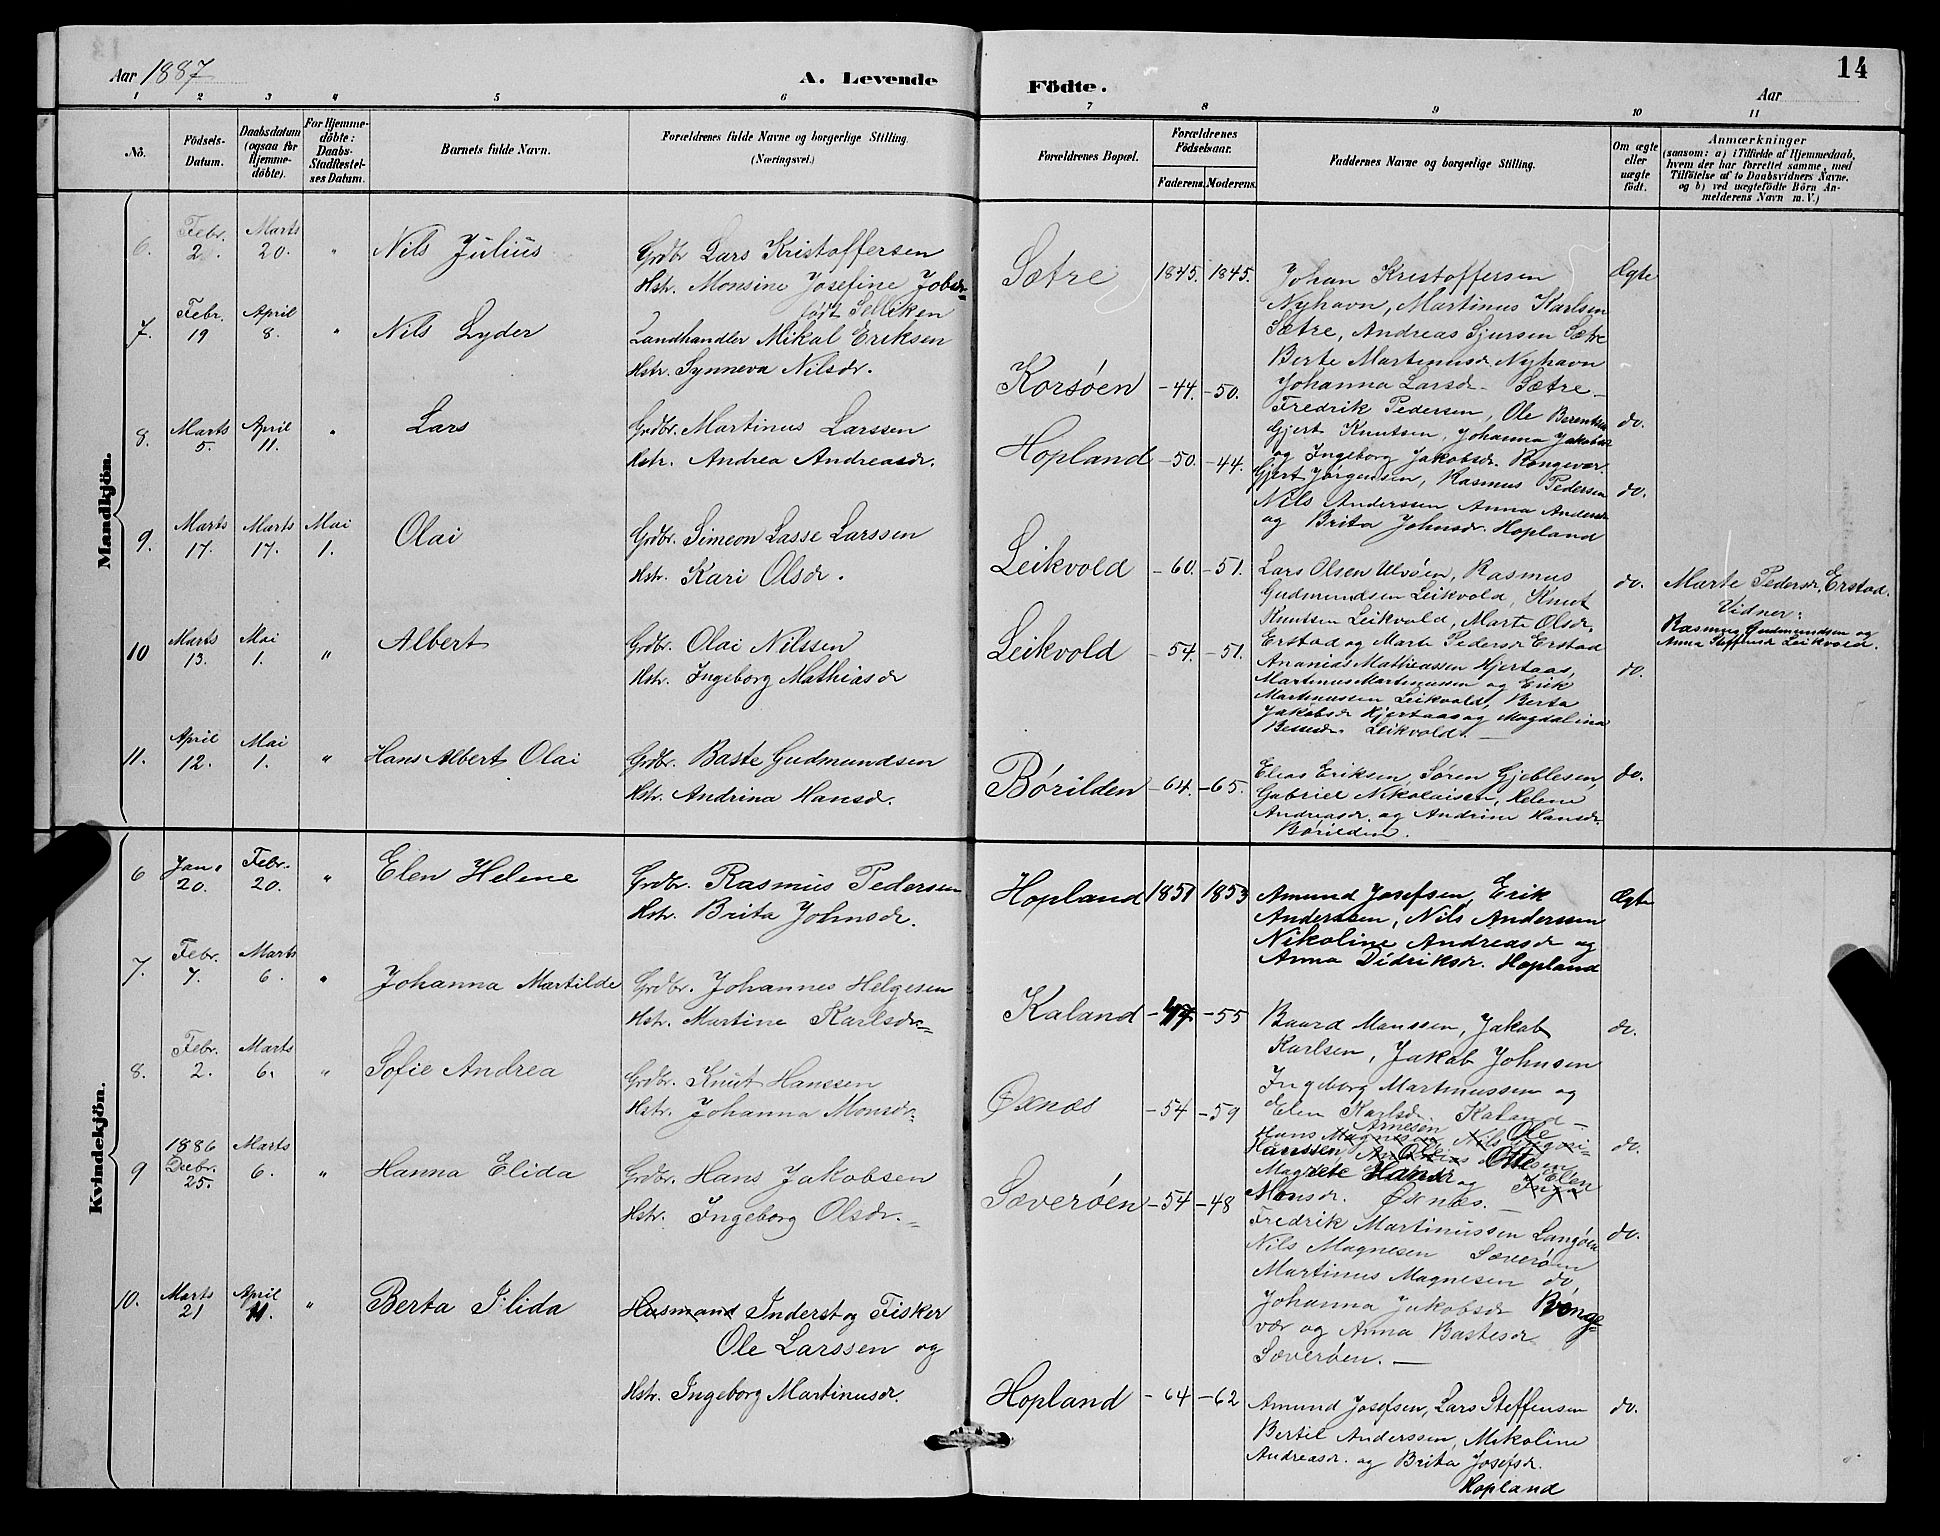 Aar 1887
A. Levende
Födte.
14
Aar
1 2 3 4 5 6 7 8 9 10 11
No.
Födsels-
Datum.
Daabsdatum
(ogsaa for
Hjemme-
döbte).
For Hjemme-
döbte:
Daabs-
Stadfestel-
ses Datum.
Barnets fulde Navn.
Forældrenes fulde Navne og borgerlige Stilling.
(Næringsvei.)
Forældrenes Bopæl.
Forældrenes
Födselsaar.
Faderens. Moderens.
Faddernes Navne og borgerlige Stilling.
Om ægte
eller
uægte
födt.
Anmærkninger
(saasom: a) i Tilfælde af Hjemmedaab,
hvem der har forrettet samme, med
Tilföielse af to Daabsvidners Navne.
og b) ved uægtefödte Börn An-
melderens Navn m. V.)
Mandkjön.
6. Febr. 2. Marts 20. " Nils Julius
Grdbr Lars Kristoffersen
Hstr. Monsine Josefine Jobsdr
født Selliken
Sætre 1845. 1845.
Johan Kristoffersen
Nyhavn, Martinus Karlsen
Sætre, Andreas Sjursen Sætre
Berte Martinusdr Nyhavn
Johanna Larsdr. Sætre
Ægte
7. Febr. 19 April 8. " Nils Lyder
Landhandler Mikal Eriksen
Hstr. Synneva Nilsdr.
Korsøen -44. -50.
Fredrik Pedersen, Ole Berentsen
Gjert Knutsen, Johanna Jakobsdr
og Ingeborg Jakobsdr. Rongevær
do.
8. Marts 5. April 11. " Lars
Grdbr. Martinus Larssen
Hstr. Andrea Andreasdr.
Hopland -50. -44.
Gjert Jørgensen, Rasmus Pedersen
Nils Anderssen Anna Andersdr
og Brita Johnsdr. Hopland
do.
9. Marts 17. Marts 17. Mai 1. Olai
Grdbr. Simeon Lasse Larssen
Hstr. Kari Olsdr.
Leikvold -60. -51.
Lars Olsen Ulvøen, Rasmus
Gudmundsen Leikvold, Knut
Knutsen Leikvold, Marte Olsdr.
Erstad og Marte Pedersdr Erstad
do.
Marte Pedersdr, Erstad.
Vidner:
Rasmus Gudmundsen og
Anna Steffensdr Leikvold.
10 Marts 13. Mai 1. " Albert
Grdbr. Olai Nilssen
Hstr. Ingeborg Mathiasdr
Leikvold -54. -51.
Ananias Mathiassen Hjertaas,
Martinus Martinussen og Erik
Martinussen Leikvold, Berta
Jakobsdr Hjertaas og Magdalina
Leikvold.
do.
11. April 12. Mai 1. " Hans Albert Olai
Grdbr. Baste Gudmundsen
Hstr. Andrina Hansdr.
Børilden -64. -65.
Elias Eriksen, Søren Gjeblesen,
Gabriel Nikolaisen, Helene
Andreasdr. og Andrine Hansdr.
Børilden.
do.
Kvindekjön.
6 Jan. 20. Febr. 20. " Elen Helene
Grdbr. Rasmus Pedersen
Hstr. Brita Johnsdr.
Hopland 1851 1853
Amund Josefsen, Erik
Anderssen, Nils Anderssen
Nikoline Andreasdr og
Anna Didriksdr. Hopland
Ægte
7. Febr. 7. Marts 6. " Johanna Martilde
Grdbr. Johannes Helgesen
Hstr. Martine Karlsdr.
Kaland -47 -55
Baard Monssen, Jakob
Karlsen, Jakob Johnsen
Ingeborg Martinussen og
Elen Karlsdr. Kaland
do.
8. Febr. 2. Marts 6. " Sofie Andrea
Grdbr. Knut Hanssen
Hstr. Johanna Monsdr.
Øxnæs -54 -59
Arnesen Ole
Hans Magnesen Nils
Hanssen, Otte
Magrete Hansdr og Elen
Monsdr. Øxnæs.
do.
9 1886 Decbr. 25. Marts 6. " Hanna Elida
Grdbr. Hans Jakobsen
Hstr. Ingeborg Olsdr.
Sæverøen -54 -48
Fredrik Martinussen Langøen
Nils Magnesen Sæverøen
Martinus Magnesen do
Johanna Jakobsdr Ronge-
vær og Anna Bastesdr
Sæverøen.
do.
10. Marts 21 April 11. " Berta Elida
Husmand Inderst og Fisker
Ole Larssen og
Hstr. Ingeborg Martinusdr.
Hopland -64 -62
Amund Josefsen, Lars Steffensen
Bertil Anderssen, Nikoline
Andreasdr. og Brita Josefsdr.
Hopland
do.